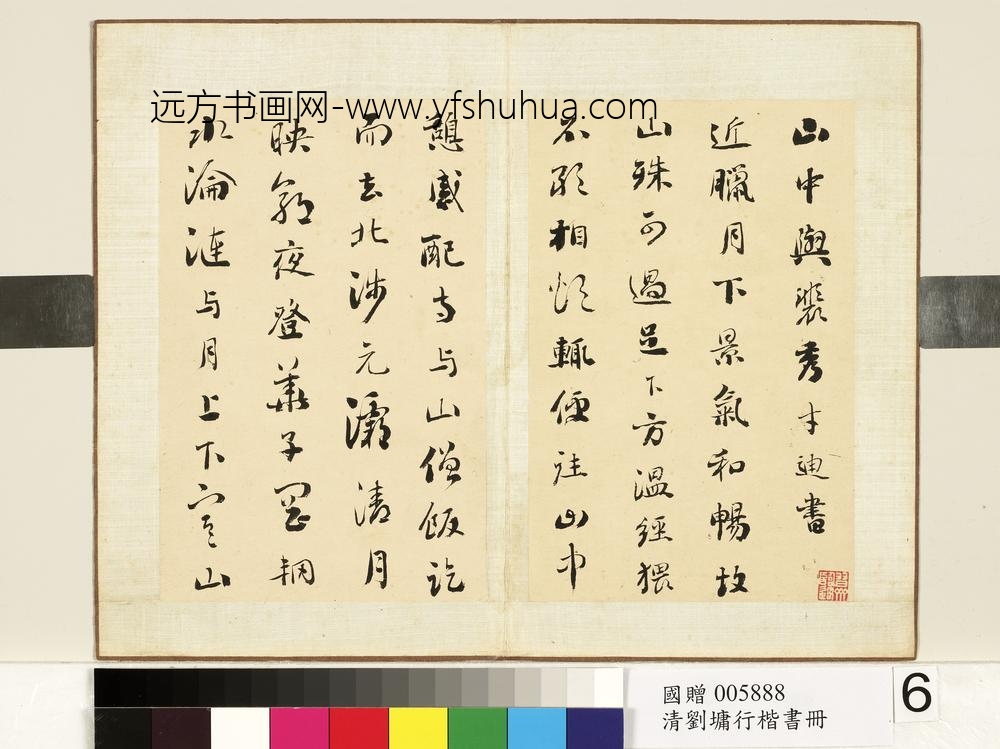 远方书画网-www.yfshuhua.com
山中與裴秀才迪書
近臘月下景氣和暢故
山殊可過足下方溫經猥
不敢相煩輒便往山中
憩感配寺与山僧飯訖
而去北涉元灞清月
映郭夜登華子岡輞
水淪漣与月上下寒山
國贈 005888
清劉墉行楷書冊
6